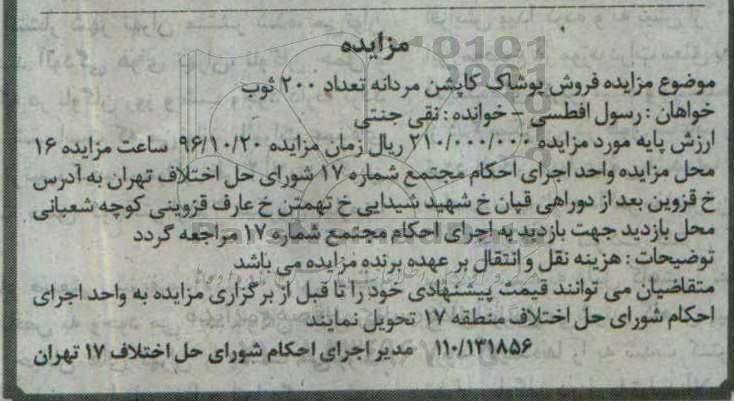 مزایده
موضوع مزایده فروش پوشاک کاپشن مردانه تعداد ۲۰۰ ثوب
خواهان : رسول افطسی – خوانده : نقی جنتی
ارزش پایه مورد مزایده ۲۱۰/۰۰۰/۰۰۰ ریال زمان مزایده ۹۶/۱۰/۲۰ ساعت مزایده ۱۶
محل مزایده واحد اجرای احکام مجتمع شماره ۱۷ شورای حل اختلاف تهران به آدرس
خ قزوین بعد از دوراهی قپان خ شهید شیدایی خ تهمتن خ عارف قزوینی کوچه شعبانی
محل بازدید جهت بازدید به اجرای احکام مجتمع شماره ۱۷ مراجعه گردد
توضیحات : هزینه نقل و انتقال بر عهده برنده مزایده می باشد
متقاضیان می توانند قیمت پیشنهادی خود را تا قبل از برگزاری مزایده به واحد اجرای
احکام شورای حل اختلاف منطقه ۱۷ تحویل نمایند
۱۱۰/۱۳۱۸۵۶ مدیر اجرای احکام شورای حل اختلاف ۱۷ تهران